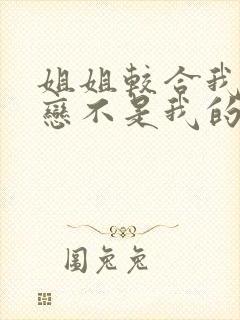 姐姐較合我
戀不是我的
圖兔兔